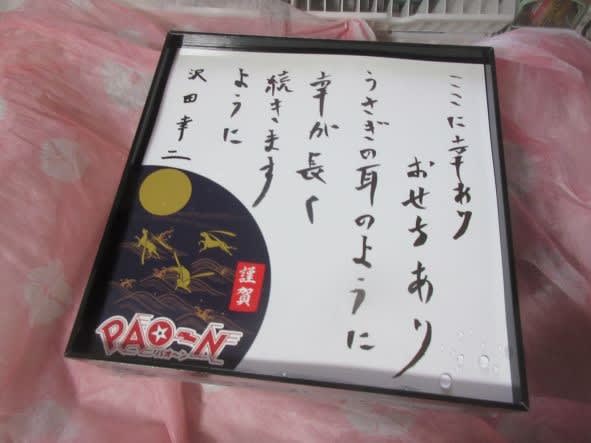 ここに幸あり
おせちあり
うさぎの耳のように
幸が長く
続きます
ように
沢田幸二
謹賀
PAO~N
パオーン